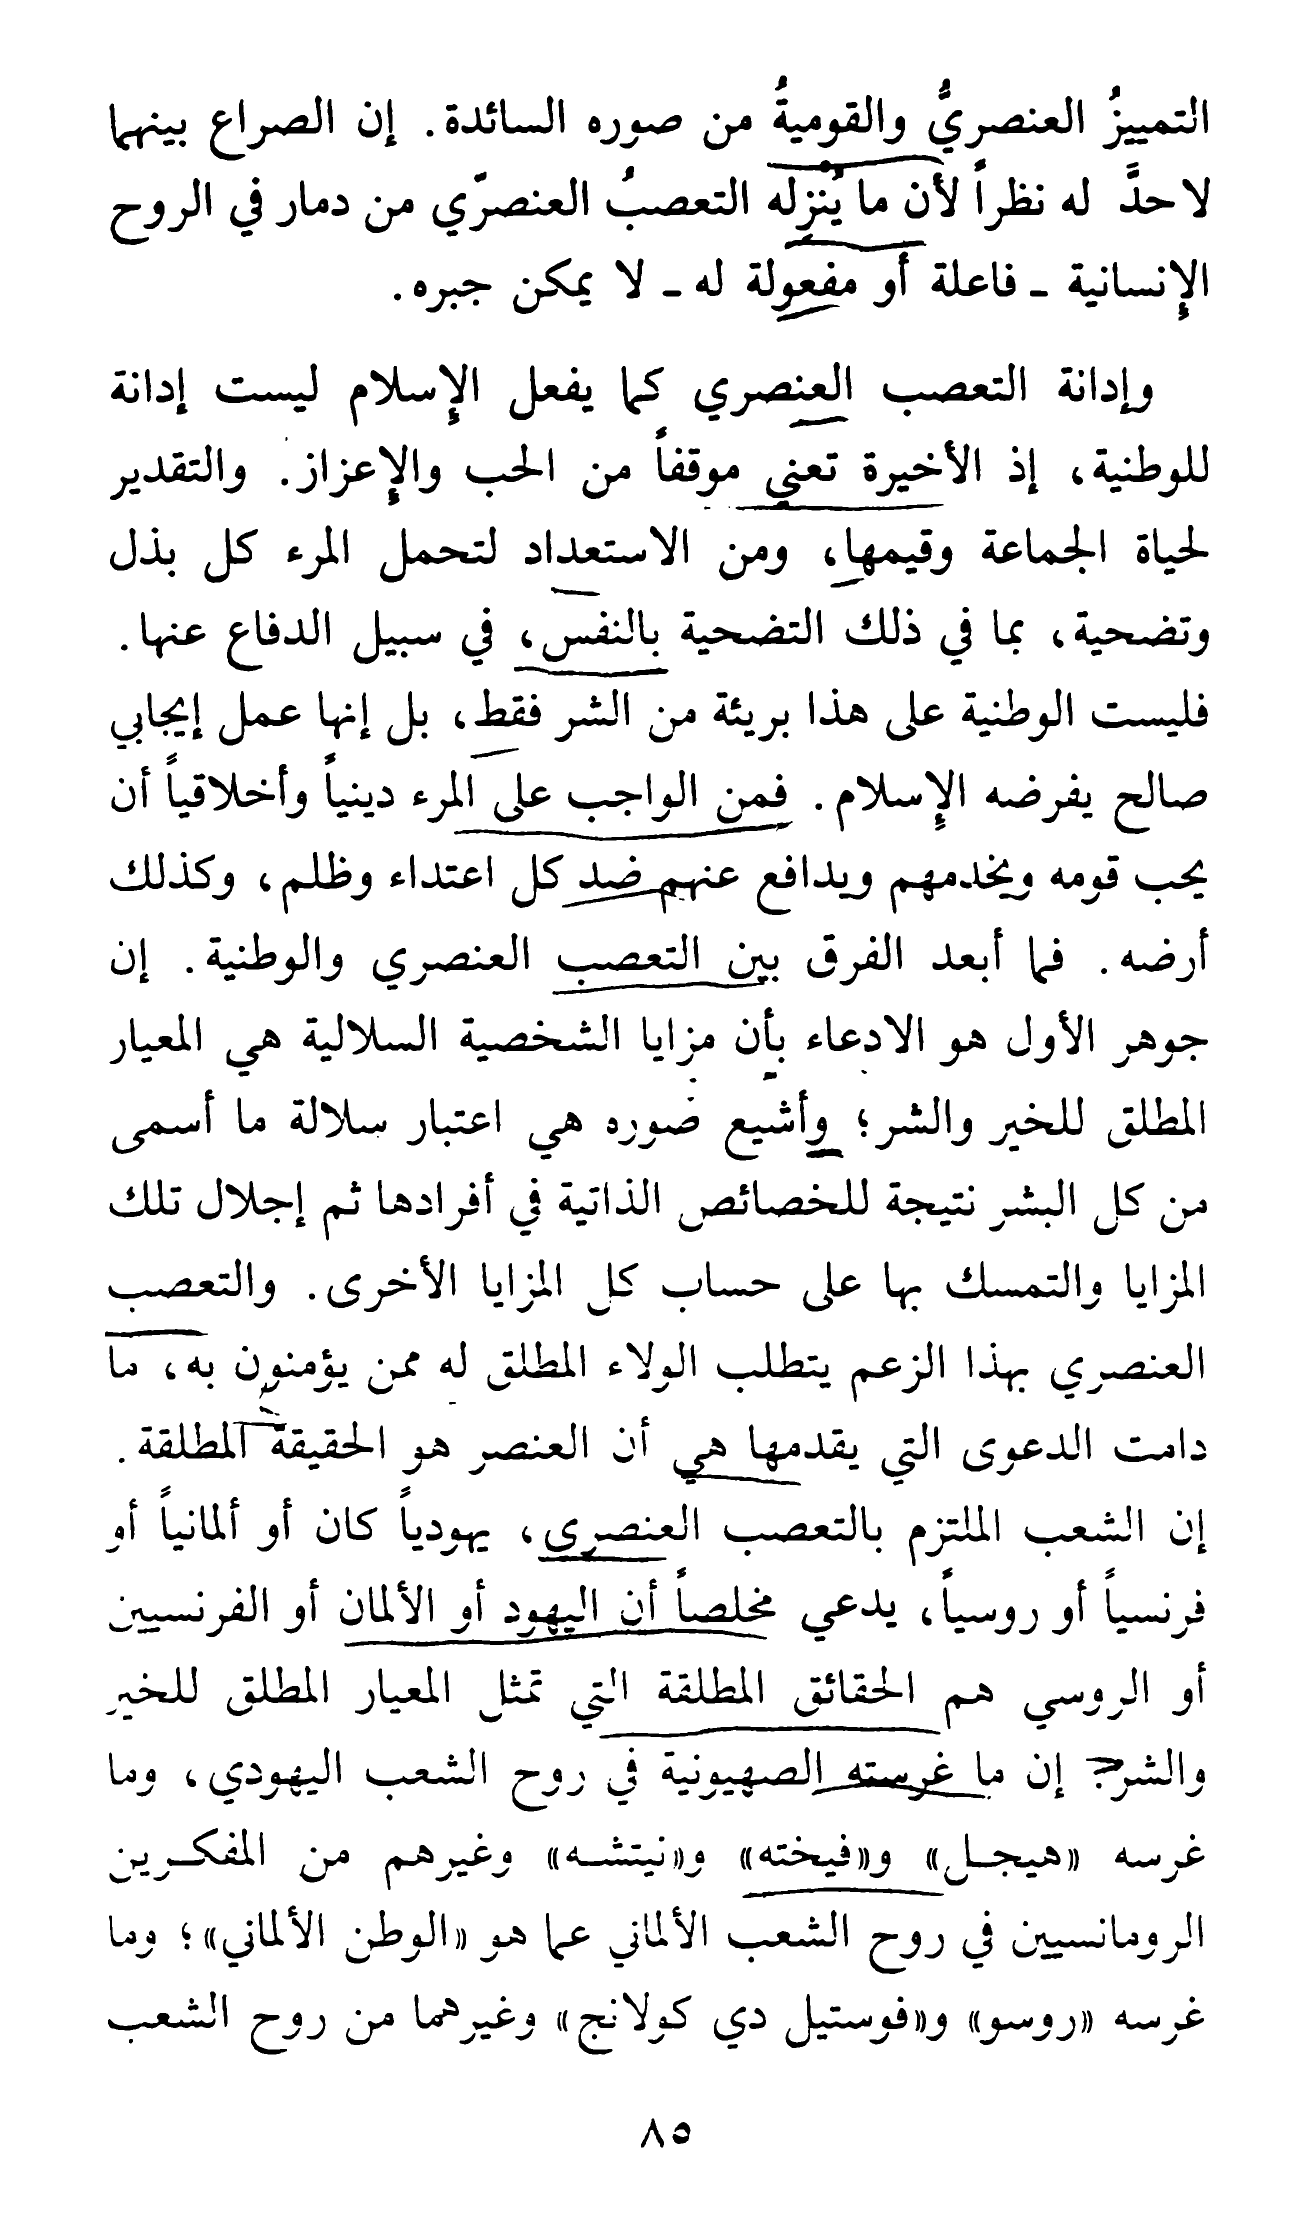 التمييزُ العنصريُّ والقوميةُ من صوره السائدة. إن الصراع بينهما
لا حدَّ له نظراً لأن ما يُنْزِله التعصبُ العنصرّي من دمار في الروح
الإنسانية - فاعلة أو مفعولة له - لا يمكن جبره.
وإدانة التعصب العنصري كما يفعل الإسلام ليست إدانة
للوطنية، إذ الأخيرة تعني موقفاً من الحب والإعزاز. والتقدير
لحياة الجماعة وقيمها، ومن الاستعداد لتحمل المرء كل بذل
وتضحية، بما في ذلك التضحية بالنفس، في سبيل الدفاع عنها.
فليست الوطنية على هذا بريئة من الشر فقط، بل إنها عمل إيجابي
صالح يفرضه الإسلام. فمن الواجب على المرء دينياً وأخلاقياً أن
يحب قومه ويخدمهم ويدافع عنهم ضد كل اعتداء وظلم، وكذلك
أرضه. فما أبعد الفرق بين التعصب العنصري والوطنية. إن
جوهر الأول هو الادعاء بأن مزايا الشخصية السلالية هي المعيار
المطلق للخير والشر؛ وأشيع صوره هي اعتبار سلالة ما أسمى
من كل البشر نتيجة للخصائص الذاتية في أفرادها ثم إجلال تلك
المزايا والتمسك بها على حساب كل المزايا الأخرى. والتعصب
العنصري بهذا الزعم يتطلب الولاء المطلق له ممن يؤمنون به، ما
دامت الدعوى التي يقدمها هي أن العنصر هو الحقيقة المطلقة.
إن الشعب الملتزم بالتعصب العنصري، يهودياً كان أو ألمانياً أو
فرنسياً أو روسياً، يدعي مخلصاً أن اليهود أو الألمان أو الفرنسيين
أو الروسي هم الحقائق المطلقة التي تمثل المعيار المطلق للخير
والشر؟ إن ما غرسته الصهيونية في روح الشعب اليهودي، وما
غرسه «هيجل» و«فيخته» و«نيتشه» وغيرهم من المفكرين
الرومانسيين في روح الشعب الألماني عما هو «الوطن الألماني»؛ وما
غرسه «روسو» و«فوستيل دي كولانج» وغيرهما من روح الشعب
٨٥